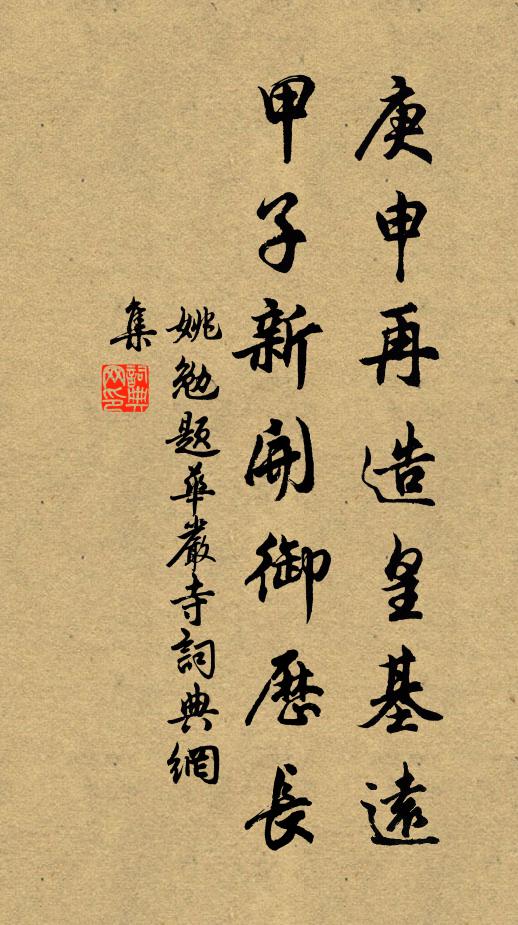 庚申再造皇基遠
甲子新開御歷長
姚勉題華嚴寺詞典網
集
詞典
网印